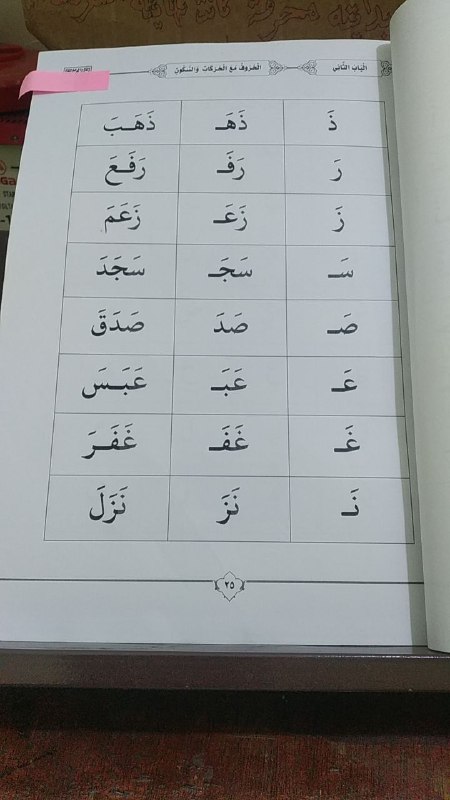 الباب الثاني الحروف مع الحركات والسكون
ذَ ذَهَـ ذَهَـبَ
رَ رَفَـ رَفَـعَ
زَ زَعَـ زَعَمَ
سَـ سَجَـ سَجَدَ
صَـ صَدَ صَدَقَ
عَـ عَبَـ عَبَـسَ
غَـ غَفَـ غَفَـرَ
نَـ نَزَ نَزَلَ
٢٥